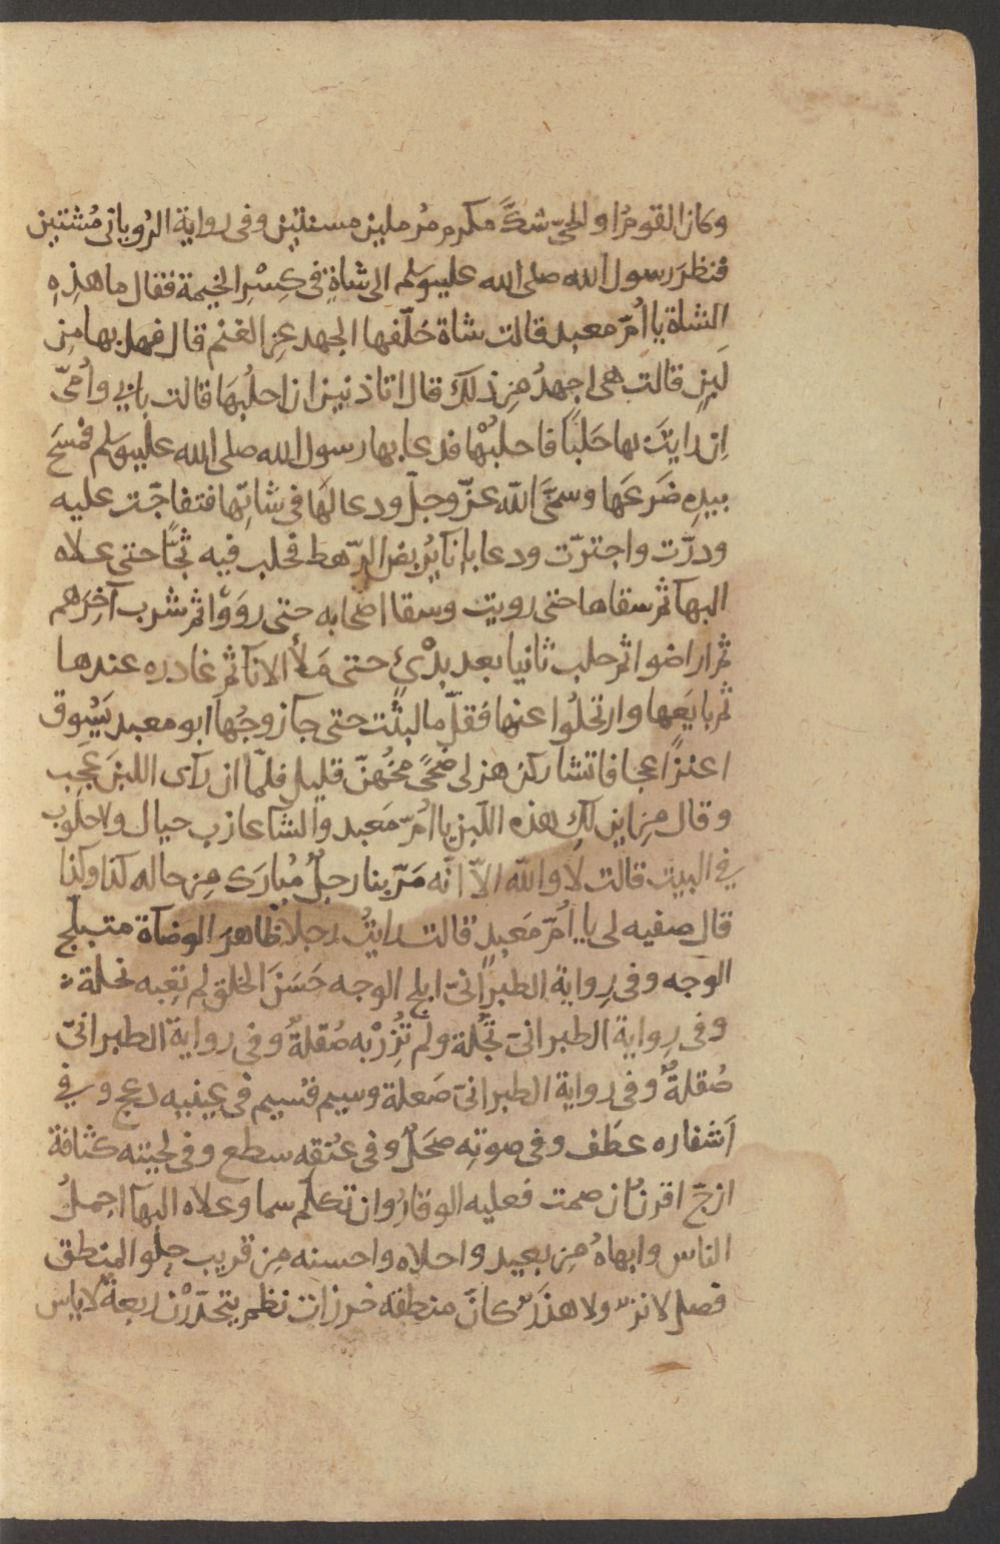 وكان القوم او الحيّ شكَّ مكرم مُرملين مسنتين وفى رواية الرُويانى مُشتين
فنظرَ رسول الله صلى الله عليه وسلم الى شاةٍ فى كِسْرِ الخيمة فقال ما هذِهِ
الشاة يا اُمّ معبد قالت شاة خلّفها الجهد عنِ الغنم قال فهل بها مِن
لَبنٍ قالت هى اجهدُ مِن ذلك قال اتاذنين ان احلبُهَا قالت بابى واُمىّ
اِن رايتَ بها حَلَبًا فاحلبْها فدعا بها رسول الله صلى الله عليه وسلم فمَسَح
بيدِه ضَرعَها وسمَّى اللّه عزّ وجلّ ودعا لهَا فى شاتِها فتفاجّت عليه
ودرّت واجترّت ودعا باِنآ يُربِض الرّهط فحلب فيه ثجًّا حتى علاه
البهآ ثم سقاها حتى رويت وسقا اصحابه حتى رَوَوْا ثم شرب آخِرَهم
ثم اراضوا ثم حلب ثانيا بعد بدْئٍ حتى مَلأ الانآ ثم غادره عندها
ثم بايَعها وارتحلُوا عنها فقلّ ما لبثت حتى جآ زوجُها ابو معبد يَسُوق
اعنزًا عجافا تشاركن هزلى ضُحًى مخُهُنّ قليل فلمّا ان رآى اللبنَ عَجِب
وقال مِن اين لكِ هذه اللبن يا اُمّ مَعبد والشآ عازب حيال ولا حلُوب
فى البيت قالت لا واللّه الاّ انّه مَرّ بنا رجلٌ مُبارَك مِن حاله كذا وكذا
قال صفيه لى يا اُمّ مَعبد قالت رايتُ رجلا ظاهرَ الوضآة متبلّج
الوجه وفى رِواية الطبرانىّ ابلج الوجه حَسَنَ الخلق لم تعِبه نحلة
وفى رِواية الطبرانىّ ثجْلة ولم تُزْرِ به صُقلةٌ وفى رواية الطبرانىّ
صُقلةٌ وفى رواية الطبرانىّ صَعلة وسيم قسيم فى عينيه دعج وفى
اَشفاره عطَف وفى صوتِه صحَلٌ وفى عنُقِه سطع وفى لحيته كثافة
ازجّ اقرن ان صمت فعليه الوقارُ وان تكلّم سما وعلاه البهآ اجملُ
الناس وابهاهُ مِن بعيد واحلاه واحسنه مِن قريب حلو المنطق
فصل لا نزر ولا هذَر كانَّ منطقه خرزات نظم يتحدّرْن ربعةٌ لا ياس